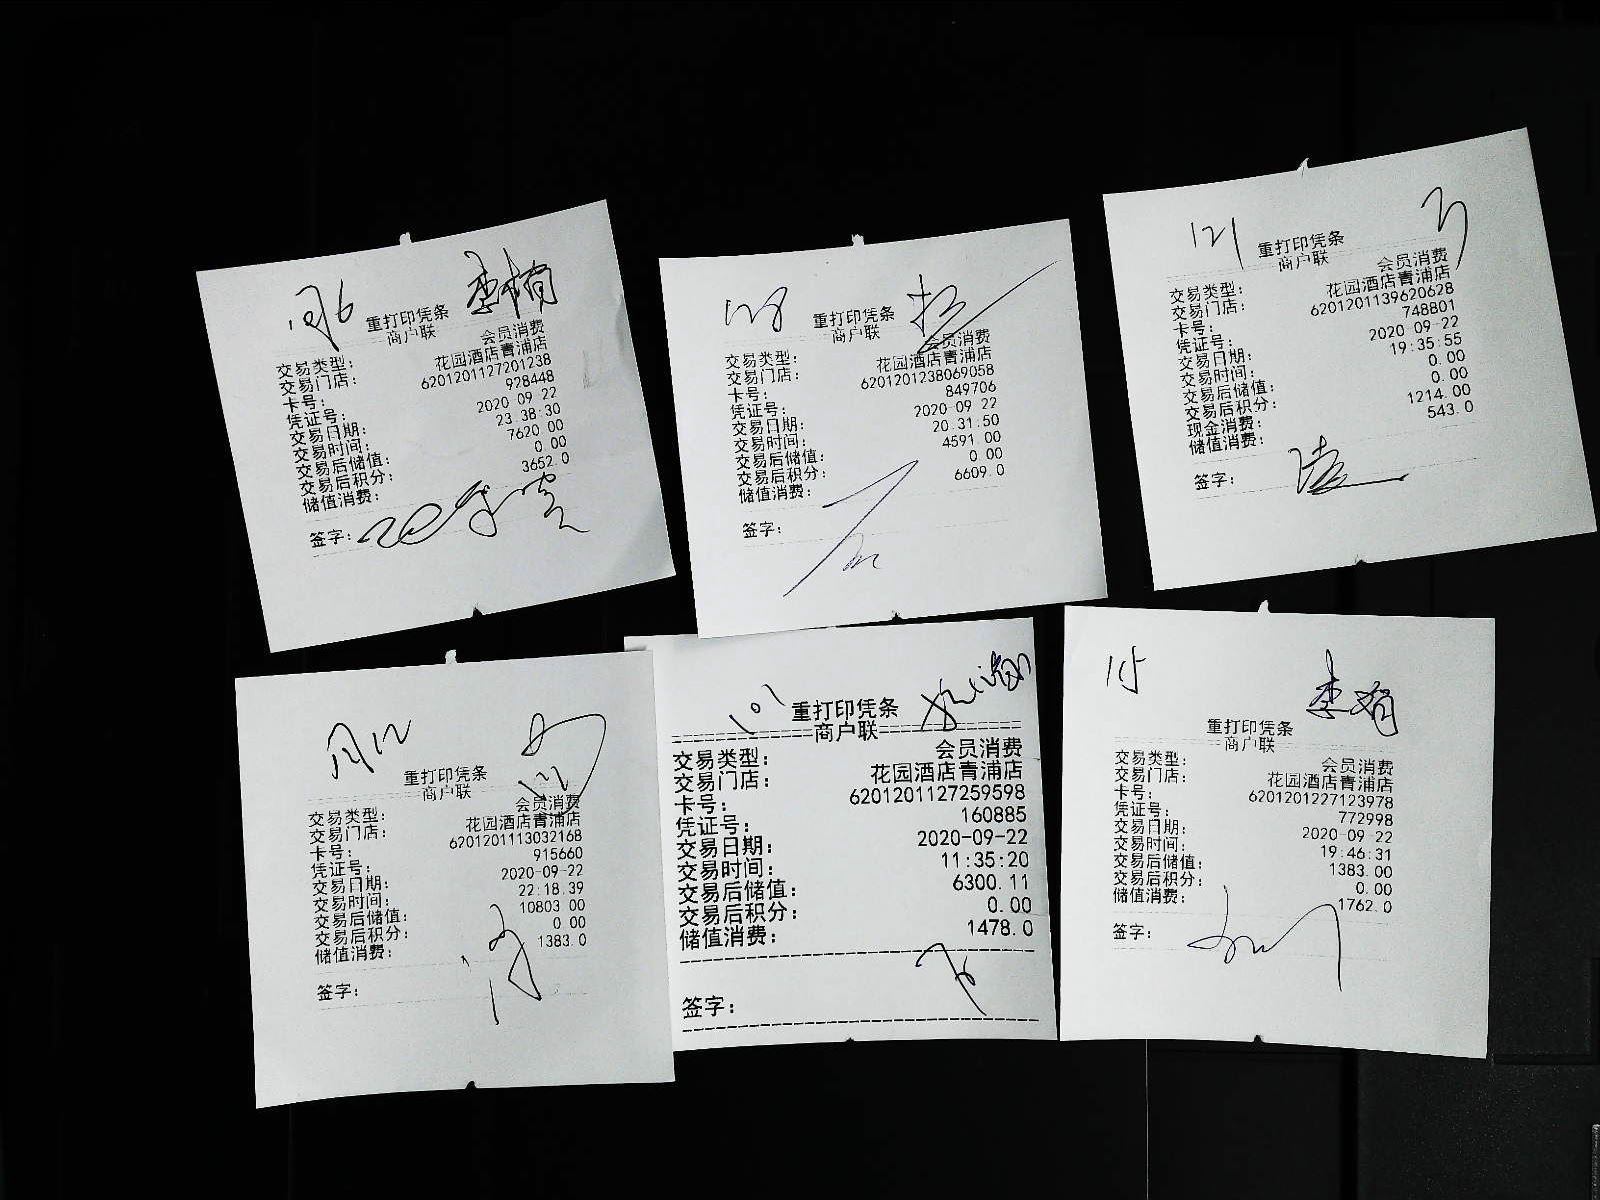 重打印凭条
商户联
交易类型: 会员消费
交易门店: 花园酒店青浦店
卡号: 6201201127201238
凭证号: 928448
交易日期: 2020-09-22
交易时间: 23:38:30
交易后储值: 7620.00
交易后积分: 0.00
储值消费: 3652.0
签字:
128
重打印凭条
商户联
交易类型: 会员消费
交易门店: 花园酒店青浦店
卡号: 6201201238069058
凭证号: 849706
交易日期: 2020-09-22
交易时间: 20:31:50
交易后储值: 4591.00
交易后积分: 0.00
储值消费: 6609.0
签字:
121
重打印凭条
商户联
交易类型: 会员消费
交易门店: 花园酒店青浦店
卡号: 6201201139620628
凭证号: 748801
交易日期: 2020-09-22
交易时间: 19:35:55
交易后储值: 0.00
交易后积分: 0.00
现金消费: 1214.00
储值消费: 543.0
签字:
重打印凭条
商户联
交易类型: 会员消费
交易门店: 花园酒店青浦店
卡号: 6201201113032168
凭证号: 915660
交易日期: 2020-09-22
交易时间: 22:18:39
交易后储值: 10803.00
交易后积分: 0.00
储值消费: 1383.0
签字:
101
重打印凭条
商户联
交易类型: 会员消费
交易门店: 花园酒店青浦店
卡号: 6201201127259598
凭证号: 160885
交易日期: 2020-09-22
交易时间: 11:35:20
交易后储值: 6300.11
交易后积分: 0.00
储值消费: 1478.0
签字:
115
重打印凭条
商户联
交易类型: 会员消费
交易门店: 花园酒店青浦店
卡号: 6201201227123978
凭证号: 772998
交易日期: 2020-09-22
交易时间: 19:46:31
交易后储值: 1383.00
交易后积分: 0.00
储值消费: 1762.0
签字: